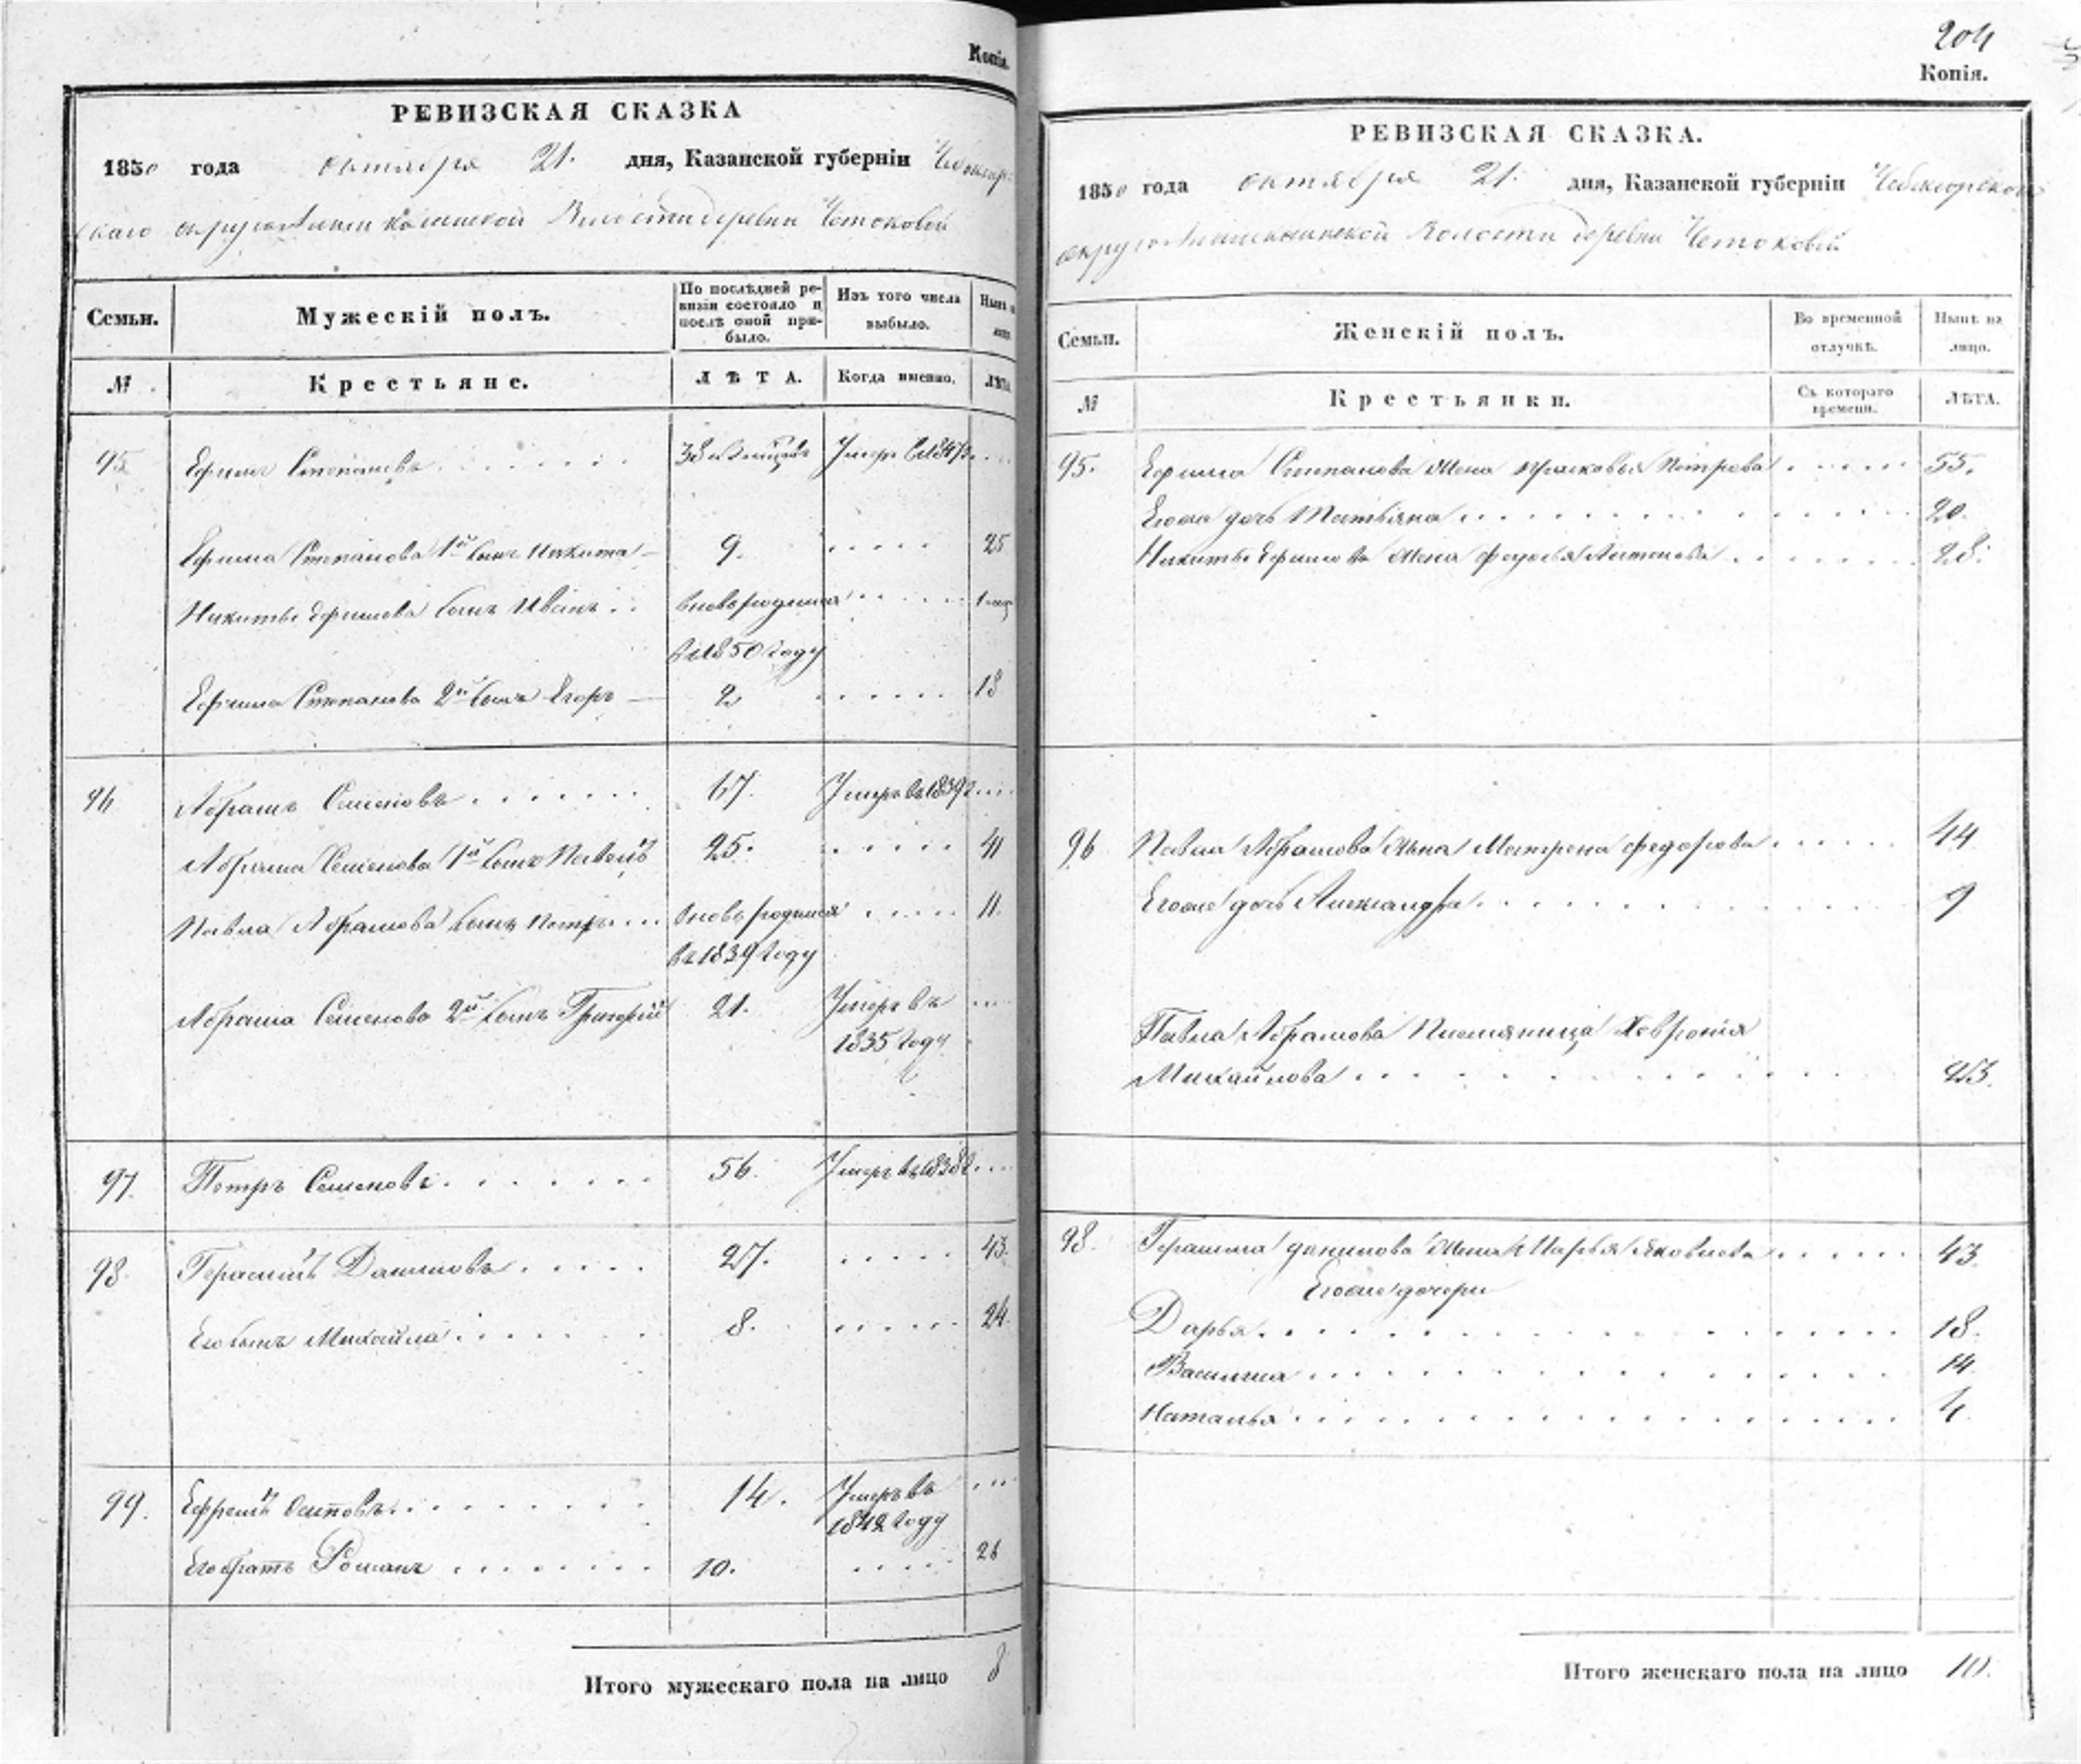 Копія.
РЕВИЗСКАЯ СКАЗКА
1850 года октября 21. дня, Казанской губерніи Чебоксар-
скаго округа Волости деревни Четоковой
Семьи. Мужескій полъ. По послѣдней ревизіи состояло и послѣ оной прибыло. Изъ того числа выбыло. Нынѣ на лицо.
№ Крестьяне. ЛѢТА. Когда именно. ЛѢТА.
95 Ефимъ Степановъ 38 Умеръ
Ефима Степанова 1й сынъ Никита 9. 25
Никиты Ефимова сынъ Иванъ вновь родился 1
въ 1850 году
Ефима Степанова 2й сынъ Егоръ 2 18
96 Абрамъ Семеновъ Умеръ въ 1839 г.
Абрама Семенова 1й сынъ Павелъ 25. 41
Павла Абрамова сынъ Петръ вновь родился 11.
въ 1839 году
Абрама Семенова 2й сынъ Григорій 21. Умеръ въ
1835 году
97. Петръ Семеновъ 56. Умеръ въ 1838 г.
98. Герасимъ Даниловъ 27. 43.
Его сынъ Михайла 8. 24.
99. Ефремъ Осиповъ 14. Умеръ въ
1842 году
Его братъ Романъ 10. 26
Итого мужескаго пола на лицо 8
204
Копія.
РЕВИЗСКАЯ СКАЗКА.
1850 года октября 21. дня, Казанской губерніи Чебоксарскаго
округа Волости деревни Четоковой
Семьи. Женскій полъ. Во временной отлучкѣ. Нынѣ на лицо.
№ Крестьянки. Съ котораго времени. ЛѢТА.
95. Ефима Степанова жена Прасковья Петрова 55.
Егожа дочь Татьяна 20.
Никиты Ефимова жена Федосья Антонова 28.
96 Павла Абрамова жена Матрена Федорова 44
Егоже дочь Александра 9
Павла Абрамова племяница Хевронія
Михайлова 23.
98. Герасима Данилова жена Марья Яковлева 43.
Егоже дочери
Дарья 18.
Василиса 14.
Наталья 4.
Итого женскаго пола на лицо 10.